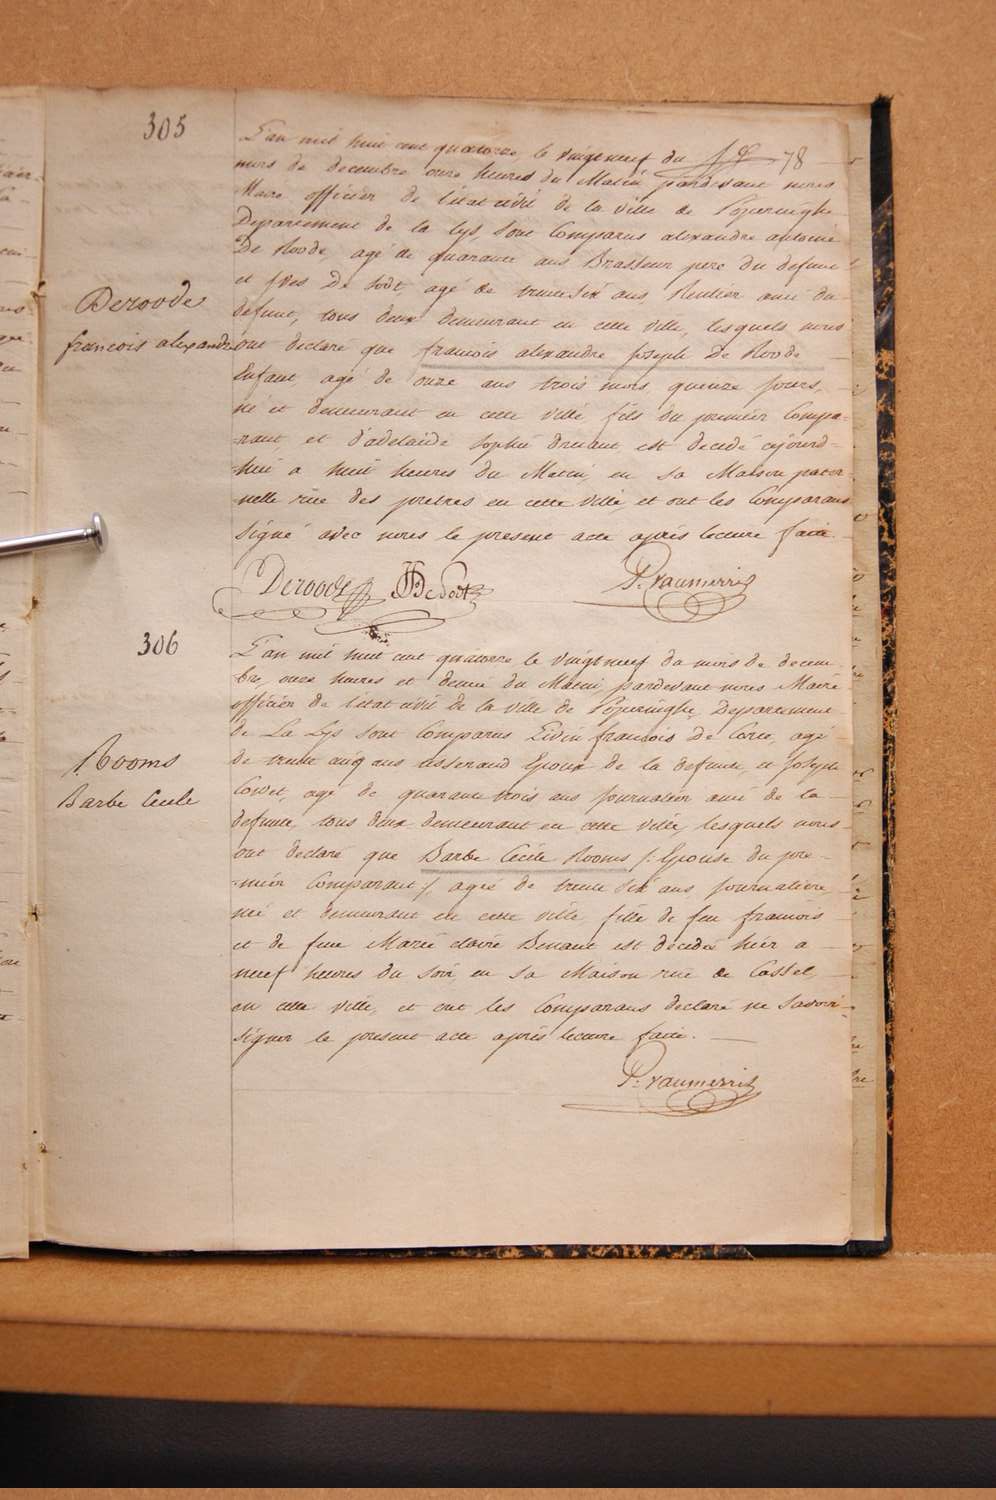 305
L'an mil huit cent quatorze, le vingt neuf du 78
mois de decembre onze heures du Matin pardevant nous
Maire officier de l'etat civil de la ville de Poperinghe
Departement de la Lys, sont Comparus alexandre antoine
De Roode, agé de quarante ans Brasseur pere du defunt
et Yves De Sodt agé de trente six ans Rentier ami du
defunt, tous deux demeurant en cette ville, lesquels nous
ont declaré que francois alexandre joseph De Roode
Enfant, agé de onze ans trois mois, quinze jours,
né et demeurant en cette ville fils du premier Compa-
-rant, et d'adelaide sophie druant est decedé cejourd-
-hui a huit heures du Matin, en sa Maison pater-
-nelle rue des pretres en cette ville, et ont les Comparans
signé avec nous le present acte après lecture faite.
Deroode
francois alexandre
Deroode De Sodt P. vaumerris
306
L'an mil huit cent quatorze le vingt neuf du mois de decem-
bre, onze heures et demie du Matin, pardevant nous Maire
officier de l'etat civil de la ville de Poperinghe, Departement
de La Lys sont Comparus francois De agé
de trente cinq ans tisserand Epoux de la defunte, et joseph
agé de quarante trois ans journalier ami de la
defunte, tous deux demeurant en cette ville, lesquels nous
ont declaré que Barbe Cécile Rooms /: Epouse du pre-
-mier Comparant /, agée de trente six ans, journaliere,
née et demeurant en cette ville, fille de feu francois
et de feue Marie claire est décédée hier a
neuf heures du soir, en sa Maison rue de Cassel,
en cette ville, et ont les Comparans declaré ne savoir
signer le present acte après lecture faite.
Rooms
Barbe Cecile
P. vaumerris